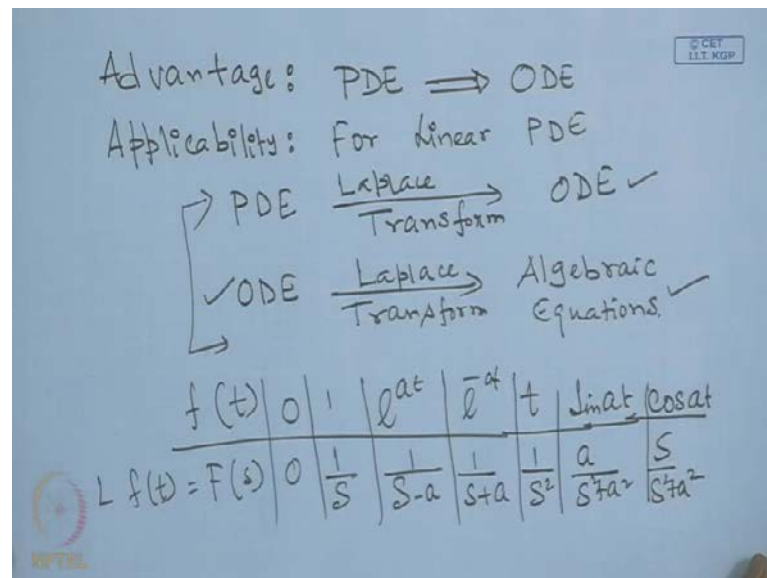 © CET
I.I.T. KGP
Advantage: PDE ⟹ ODE
Applicability: For Linear PDE
PDE Laplace Transform → ODE ✓
✓ODE Laplace Transform → Algebraic Equations ✓
f(t) | 0 | 1 | e^{at} | e^{-at} | t | Sin at | Cos at
L f(t) = F(s) | 0 | 1/S | 1/(S-a) | 1/(S+a) | 1/S² | a/(S²+a²) | S/(S²+a²)
NPTEL